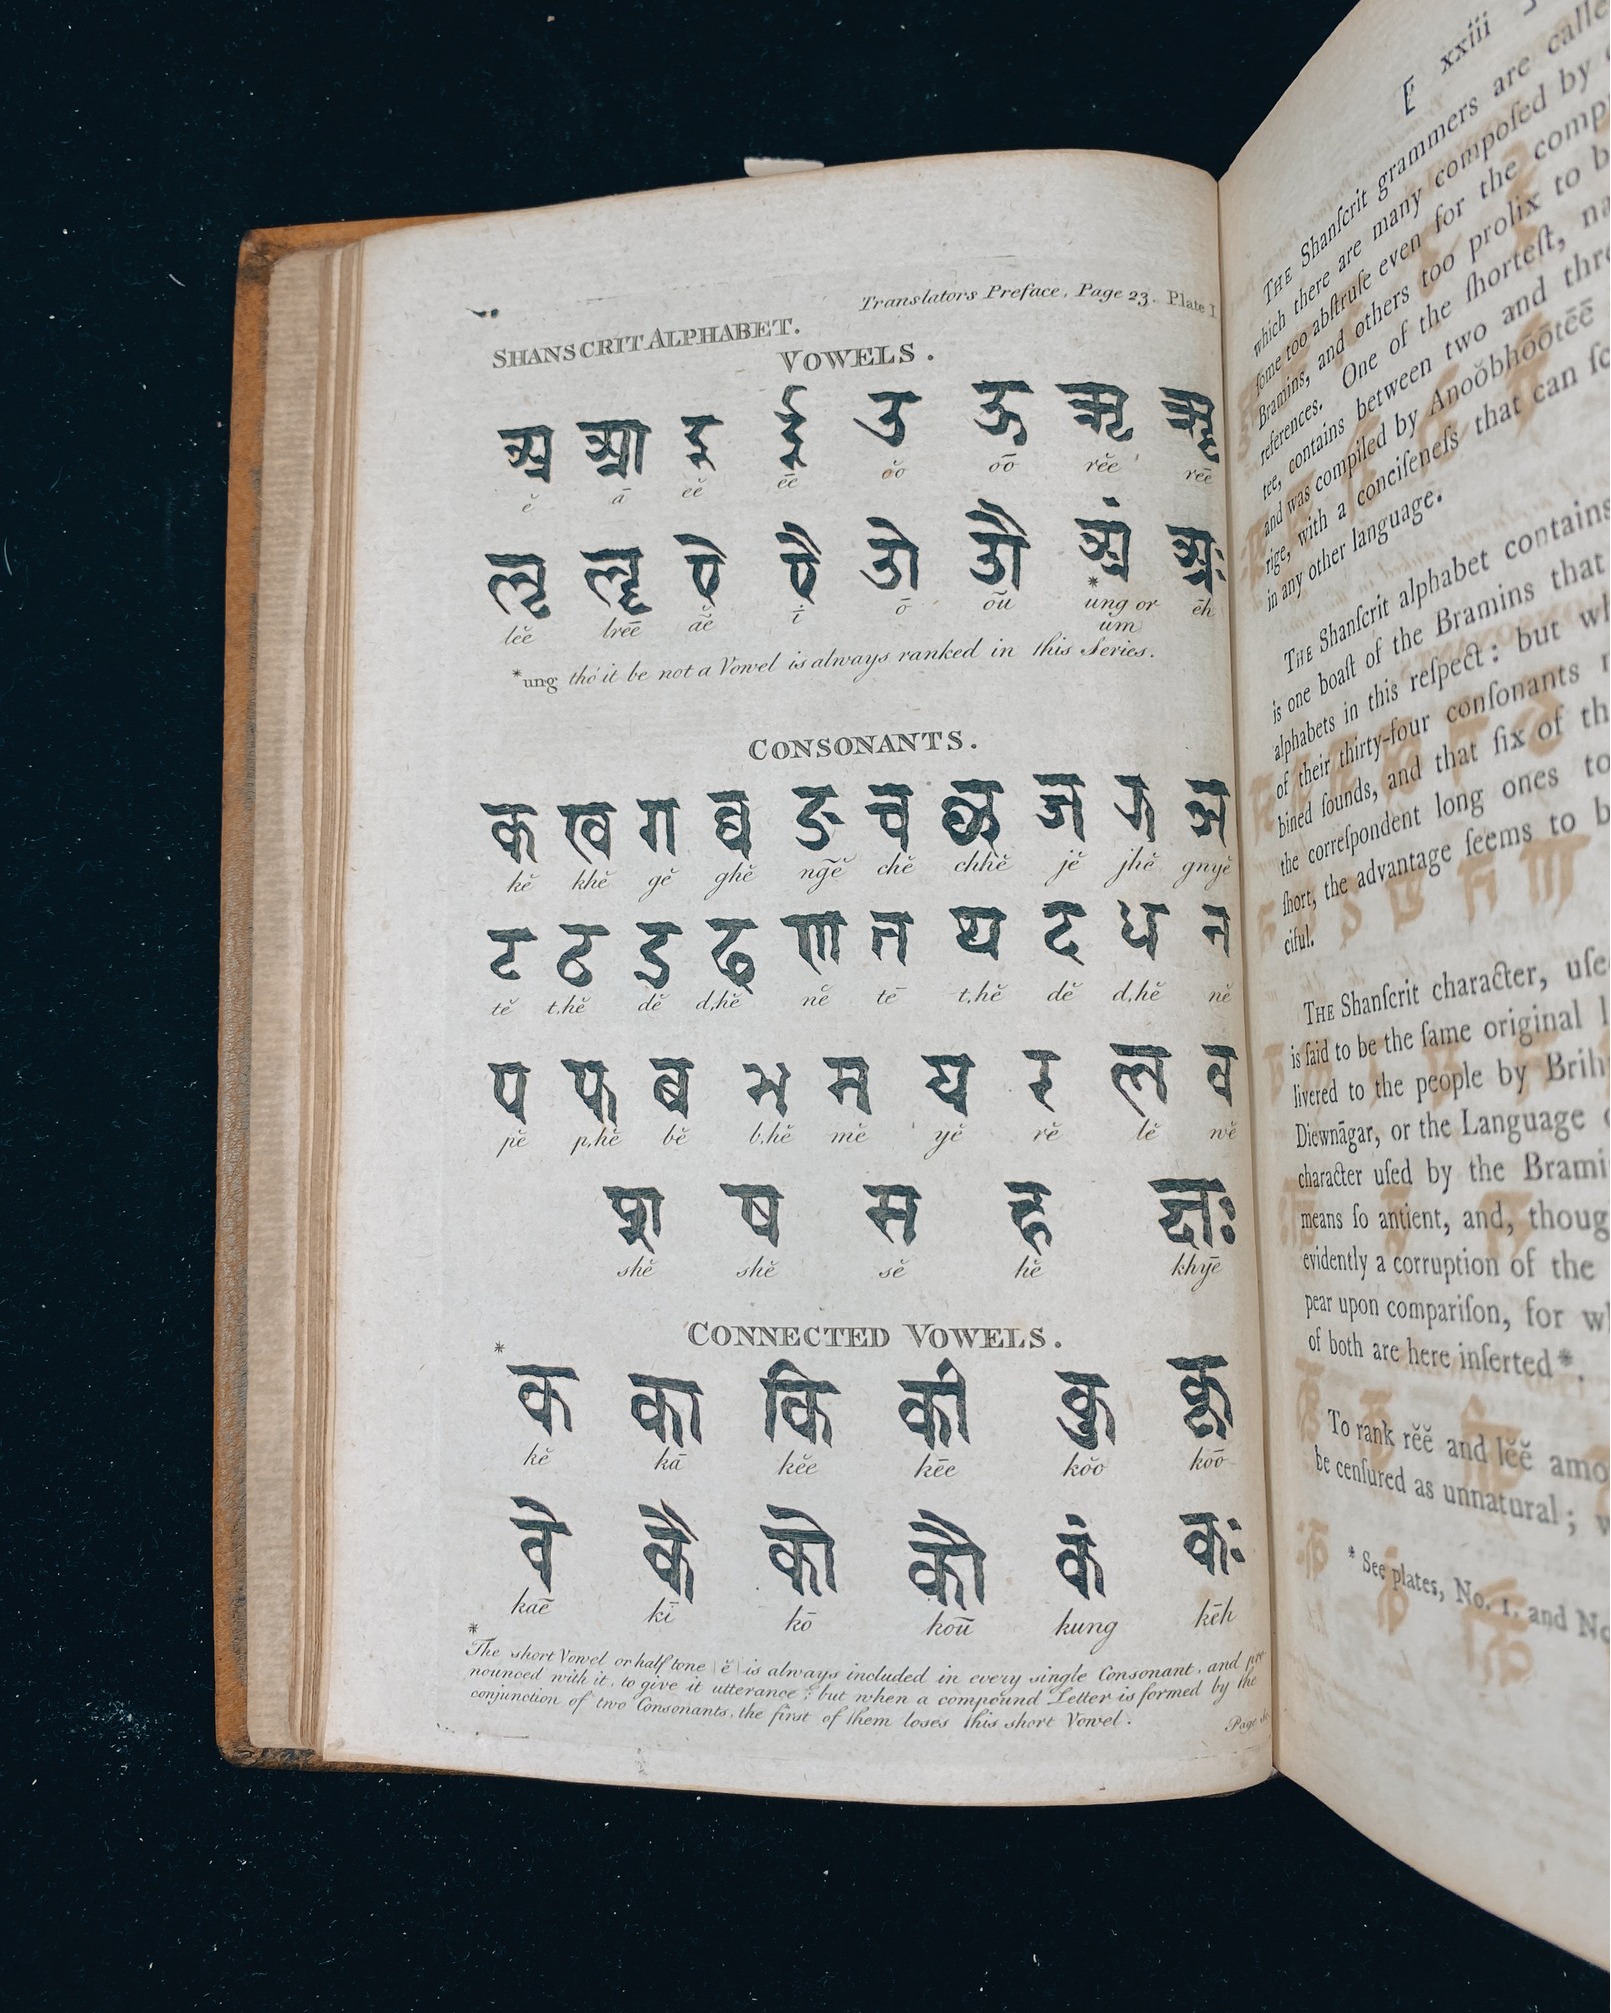 Translators Preface, Page 23. Plate I
SHANSCRIT ALPHABET.
VOWELS.
अ आ इ ई उ ऊ ऋ ॠ
ĕ ā ĕĕ ēē ŏŏ ōō rĕĕ rēē
ऌ ॡ ए ऐ ओ औ अं अः
lĕĕ lrēē āē ī ō ōū *ŭng or ēh
ŭm
*ung thó it be not a Vowel is always ranked in this Series.
CONSONANTS.
क ख ग घ ङ च छ ज झ ञ
kĕ khĕ gĕ ghĕ ngĕ chĕ chhĕ jĕ jhĕ gnyĕ
ट ठ ड ढ ण त थ द ध न
tĕ t,hĕ dĕ d,hĕ nĕ tĕ t,hĕ dĕ d,hĕ nĕ
प फ ब भ म य र ल व
pĕ p,hĕ bĕ b,hĕ mĕ yĕ rĕ lĕ wĕ
श ष स ह क्षः
shĕ shĕ sĕ hĕ khyē
CONNECTED VOWELS.
* क का कि की कु कू
kĕ kā kĕĕ kēē kŏŏ kōō
के कै को कौ कं कः
kaē kī kō koū kung kēh
* The short Vowel or half tone (ĕ) is always included in every single Consonant, and pro
nounced with it, to give it utterance; but when a compound Letter is formed by the
conjunction of two Consonants, the first of them loses this short Vowel.
Page
[ xxiii
THE Shanſcrit grammers are calle
which there are many compoſed by
ſome too abſtruſe even for the comp
Bramins, and others too prolix to b
references. One of the ſhorteſt, na
tee, contains between two and thre
and was compiled by Anoŏbhōōtēē
rige, with a conciſeneſs that can ſc
in any other language.
THE Shanſcrit alphabet contains
is one boaſt of the Bramins that
alphabets in this reſpect: but wh
of their thirty-four conſonants
bined ſounds, and that ſix of th
the correſpondent long ones to
ſhort, the advantage ſeems to b
ciful.
THE Shanſcrit character, uſe
is ſaid to be the ſame original l
livered to the people by Brih
Diewnāgar, or the Language
character uſed by the Brami
means ſo antient, and, thoug
evidently a corruption of the
pear upon compariſon, for wh
of both are here inſerted*.
To rank rĕĕ and lĕĕ amo
be cenſured as unnatural; w
* See plates, No. 1. and No